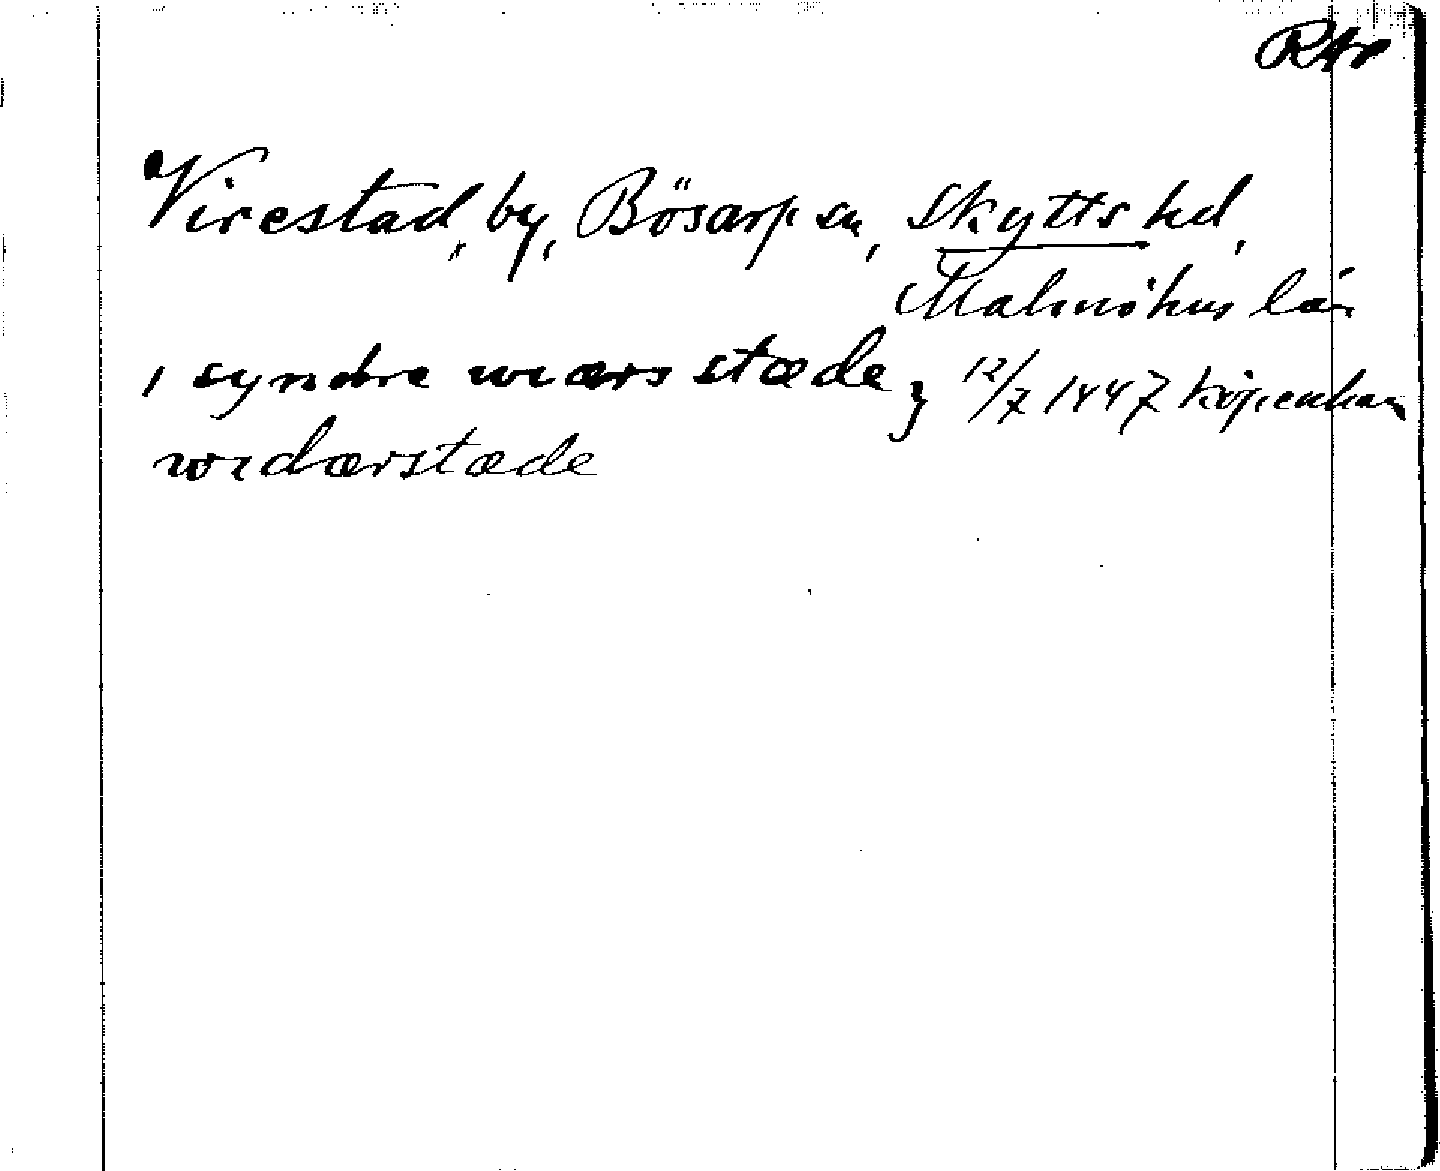 RAp
Virestad, by, Bösarp sn, Skytts hd,
Malmöhus län
ı syndre wıærs stæde } 12/7 1447 Köpenhamn
wıdærstæde